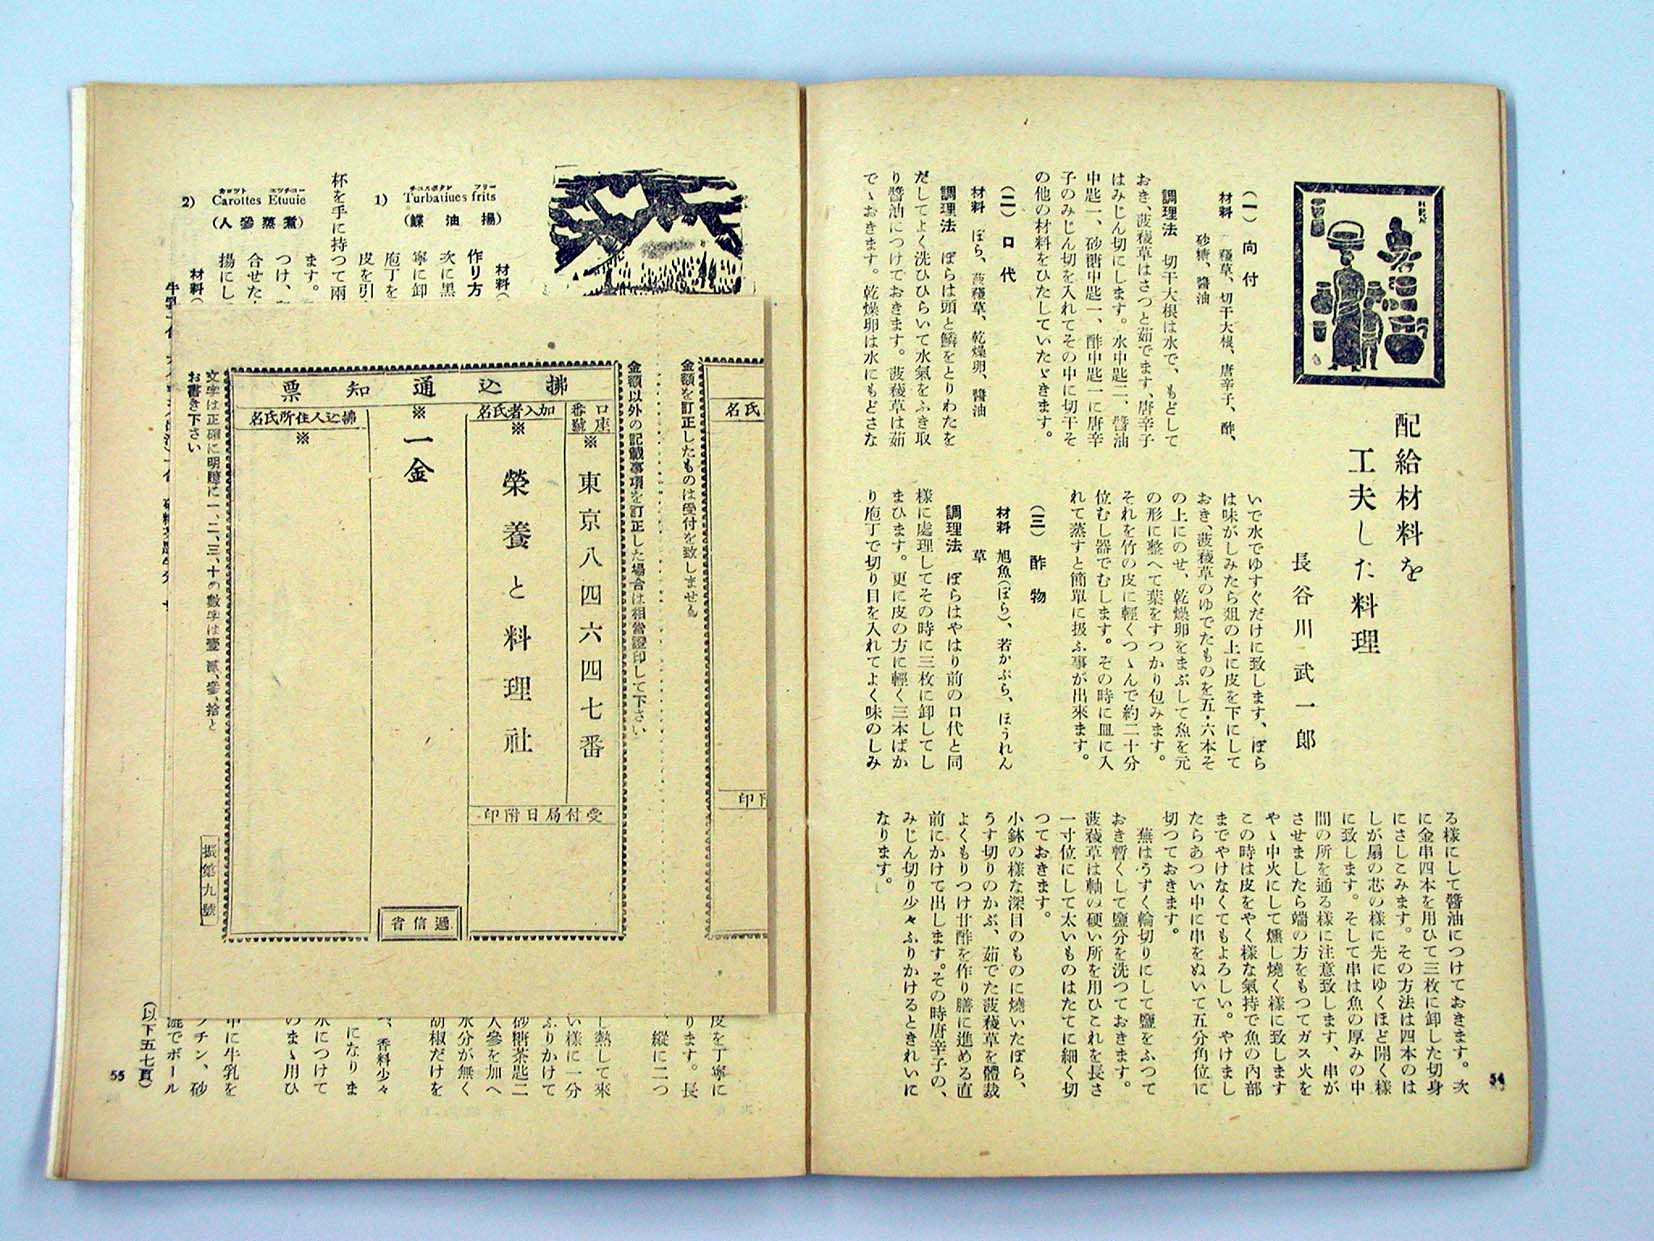 配給材料を
工夫した料理
長谷川武一郎
(一) 向付
材料 菠薐草、切干大根、唐辛子、酢、
砂糖、醬油
調理法 切干大根は水で、もどして
おき、菠薐草はさつと茹でます、唐辛子
はみじん切にします。水中匙二、醬油
中匙一、砂糖中匙一、酢中匙一に唐辛
子のみじん切を入れてその中に切干そ
の他の材料をひたしていたゞきます。
(二) 口代
材料 ぼら、菠薐草、乾燥卵、醬油
調理法 ぼらは頭と鱗をとりわたを
だしてよく洗ひひらいて水氣をふき取
り醬油につけておきます。菠薐草は茹
でゝおきます。乾燥卵は水にもどさな
いで水でゆすぐだけに致します、ぼら
は味がしみたら俎の上に皮を下にして
おき、菠薐草のゆでたものを五・六本そ
の上にのせ、乾燥卵をまぶして魚を元
の形に整へて葉をすつかり包みます。
それを竹の皮に輕くつゝんで約二十分
位むし器でむします。その時に皿に入
れて蒸すと簡單に扱ふ事が出來ます。
(三) 酢物
材料 旭魚(ぼら)、若かぶら、ほうれん
草
調理法 ぼらはやはり前の口代と同
樣に處理してその時に三枚に卸してし
まひます。更に皮の方に輕く三本ばか
り庖丁で切り目を入れてよく味のしみ
る樣にして醬油につけておきます。次
に金串四本を用ひて三枚に卸した切身
にさしこみます。その方法は四本のは
しが扇の芯の樣に先にゆくほど開く樣
に致します。そして串は魚の厚みの中
間の所を通る樣に注意致します、串が
させましたら端の方をもつてガス火を
やゝ中火にして燻し燒く樣に致します
この時は皮をやく樣な氣持で魚の內部
までやけなくてもよろしい。やけまし
たらあつい中に串をぬいて五分角位に
切つておきます。
蕪はうすく輪切りにして鹽をふつて
おき暫くして鹽分を洗つておきます。
菠薐草は軸の硬い所を用ひこれを長さ
一寸位にして太いものはたてに細く切
つておきます。
小鉢の樣な深目のものに燒いたぼら、
うす切りのかぶ、茹でた菠薐草を體裁
よくもりつけ甘酢を作り膳に進める直
前にかけて出します。その時唐辛子の、
みじん切り少々ふりかけるときれいに
なります。
54
フリー
Turbatiues frits
1)
(揚油鰈)
材料(
作り方
次に黑
寧に卸
庖丁を
皮を引
杯を手に持つて兩
ます。
つけ、
合せた
揚にし
2)
Carottes Etuuie
(煮蒸參人)
材料(
氏名
金額を訂正したものは受付を致しません
金額以外の記載事項を訂正した場合は相當證印して下さい
拂込通知票
口座番號
※
東京八四六四七番
加入者氏名
※
榮養と料理社
受付局日附印
※
一金
遞信省
拂込人住所氏名
※
文字は正確に明瞭に一、二、三、十の數字は壹、貳、參、拾と
お書き下さい
振第九號
皮を丁寧に
ります。長
、縱に二つ
し熱して來
い樣に一分
ふりかけて
砂糖茶匙二
人參を加へ
水分が無く
胡椒だけを
、香料少々
になりま
水につけて
のまゝ用ひ
中に牛乳を
ラチン、砂
漉でボール
(以下五七頁)
55